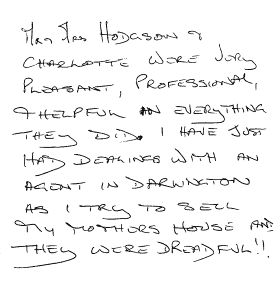 Mrs Ims Hodgson &
Charlotte were very
Pleasant, Professional,
& Helpful in everything
they did. I have just
had dealings with an
agent in Darlington
as I try to sell
my mothers house and
they were dreadful!!